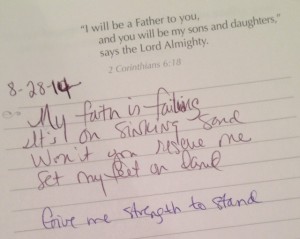 "I will be a Father to you,
and you will be my sons and daughters,"
says the Lord Almighty.
2 Corinthians 6:18
8-28-14
My faith is failing
It's on sinking sand
Won't you rescue me
Set my feet on land
Give me strength to stand